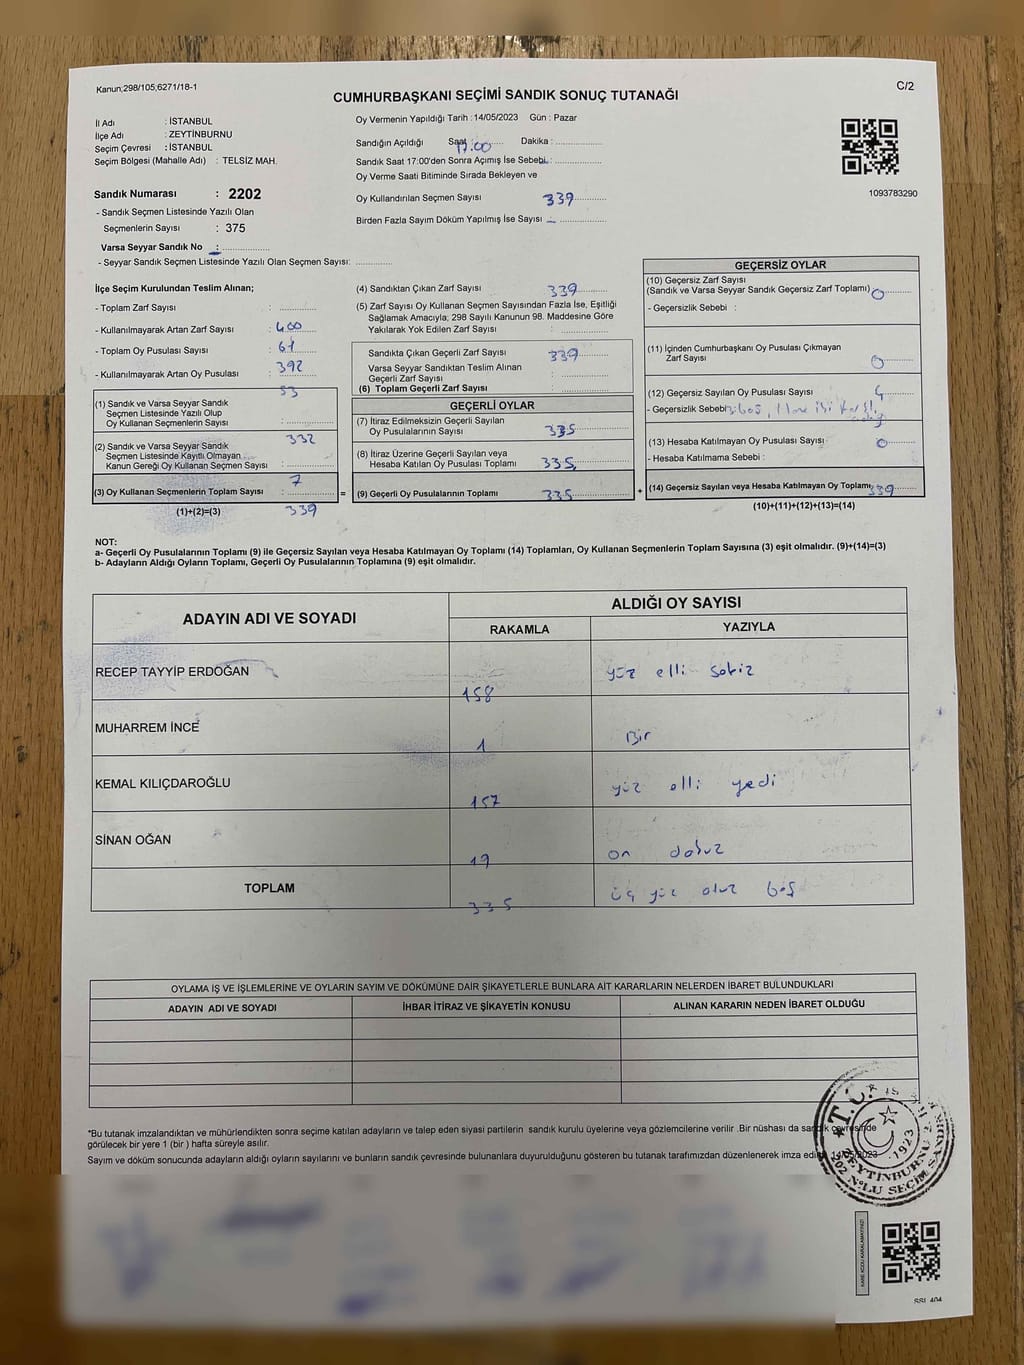 Kanun;298/105,6271/18-1
C/2
CUMHURBAŞKANI SEÇİMİ SANDIK SONUÇ TUTANAĞI
İl Adı : İSTANBUL
İlçe Adı : ZEYTİNBURNU
Seçim Çevresi : İSTANBUL
Seçim Bölgesi (Mahalle Adı) : TELSİZ MAH.
Sandık Numarası : 2202
- Sandık Seçmen Listesinde Yazılı Olan
Seçmenlerin Sayısı : 375
Varsa Seyyar Sandık No : -
- Seyyar Sandık Seçmen Listesinde Yazılı Olan Seçmen Sayısı:
Oy Vermenin Yapıldığı Tarih :14/05/2023 Gün : Pazar
Sandığın Açıldığı Saat : 17:00 Dakika :
Sandık Saat 17:00'den Sonra Açımış İse Sebebi :
Oy Verme Saati Bitiminde Sırada Bekleyen ve
Oy Kullandırılan Seçmen Sayısı 339
Birden Fazla Sayım Döküm Yapılmış İse Sayısı -
1093783290
İlçe Seçim Kurulundan Teslim Alınan;
- Toplam Zarf Sayısı :
- Kullanılmayarak Artan Zarf Sayısı : 400
- Toplam Oy Pusulası Sayısı : 61
- Kullanılmayarak Artan Oy Pusulası : 392
53
(1) Sandık ve Varsa Seyyar Sandık
Seçmen Listesinde Yazılı Olup
Oy Kullanan Seçmenlerin Sayısı :
332
(2) Sandık ve Varsa Seyyar Sandık
Seçmen Listesinde Kayıtlı Olmayan
Kanun Gereği Oy Kullanan Seçmen Sayısı :
7
(3) Oy Kullanan Seçmenlerin Toplam Sayısı :
(1)+(2)=(3) 339
(4) Sandıktan Çıkan Zarf Sayısı 339
(5) Zarf Sayısı Oy Kullanan Seçmen Sayısından Fazla İse, Eşitliği
Sağlamak Amacıyla; 298 Sayılı Kanunun 98. Maddesine Göre
Yakılarak Yok Edilen Zarf Sayısı :
Sandıkta Çıkan Geçerli Zarf Sayısı 339
Varsa Seyyar Sandıktan Teslim Alınan
Geçerli Zarf Sayısı
(6) Toplam Geçerli Zarf Sayısı
GEÇERLİ OYLAR
(7) İtiraz Edilmeksizin Geçerli Sayılan
Oy Pusulalarının Sayısı 335
(8) İtiraz Üzerine Geçerli Sayılan veya
Hesaba Katılan Oy Pusulası Toplamı 335
= (9) Geçerli Oy Pusulalarının Toplamı 335
GEÇERSİZ OYLAR
(10) Geçersiz Zarf Sayısı
(Sandık ve Varsa Seyyar Sandık Geçersiz Zarf Toplamı) 0
- Geçersizlik Sebebi :
(11) İçinden Cumhurbaşkanı Oy Pusulası Çıkmayan
Zarf Sayısı 0
(12) Geçersiz Sayılan Oy Pusulası Sayısı 4
- Geçersizlik Sebebi
(13) Hesaba Katılmayan Oy Pusulası Sayısı 0
- Hesaba Katılmama Sebebi :
+ (14) Geçersiz Sayılan veya Hesaba Katılmayan Oy Toplamı 339
(10)+(11)+(12)+(13)=(14)
NOT:
a- Geçerli Oy Pusulalarının Toplamı (9) ile Geçersiz Sayılan veya Hesaba Katılmayan Oy Toplamı (14) Toplamları, Oy Kullanan Seçmenlerin Toplam Sayısına (3) eşit olmalıdır. (9)+(14)=(3)
b- Adayların Aldığı Oyların Toplamı, Geçerli Oy Pusulalarının Toplamına (9) eşit olmalıdır.
ADAYIN ADI VE SOYADI
ALDIĞI OY SAYISI
RAKAMLA YAZIYLA
RECEP TAYYİP ERDOĞAN 158 yüz elli sekiz
MUHARREM İNCE 1 Bir
KEMAL KILIÇDAROĞLU 157 yüz elli yedi
SİNAN OĞAN 19 on dokuz
TOPLAM 335 üç yüz otuz beş
OYLAMA İŞ VE İŞLEMLERİNE VE OYLARIN SAYIM VE DÖKÜMÜNE DAİR ŞİKAYETLERLE BUNLARA AİT KARARLARIN NELERDEN İBARET BULUNDUKLARI
ADAYIN ADI VE SOYADI İHBAR İTİRAZ VE ŞİKAYETİN KONUSU ALINAN KARARIN NEDEN İBARET OLDUĞU
*Bu tutanak imzalandıktan ve mühürlendikten sonra seçime katılan adayların ve talep eden siyasi partilerin sandık kurulu üyelerine veya gözlemcilerine verilir .Bir nüshası da sandık çevresinde
görülecek bir yere 1 (bir ) hafta süreyle asılır.
Sayım ve döküm sonucunda adayların aldığı oyların sayılarını ve bunların sandık çevresinde bulunanlara duyurulduğunu gösteren bu tutanak tarafımızdan düzenlenerek imza edildi. 14/05/2023
T.C.
1923
ZEYTİNBURNU